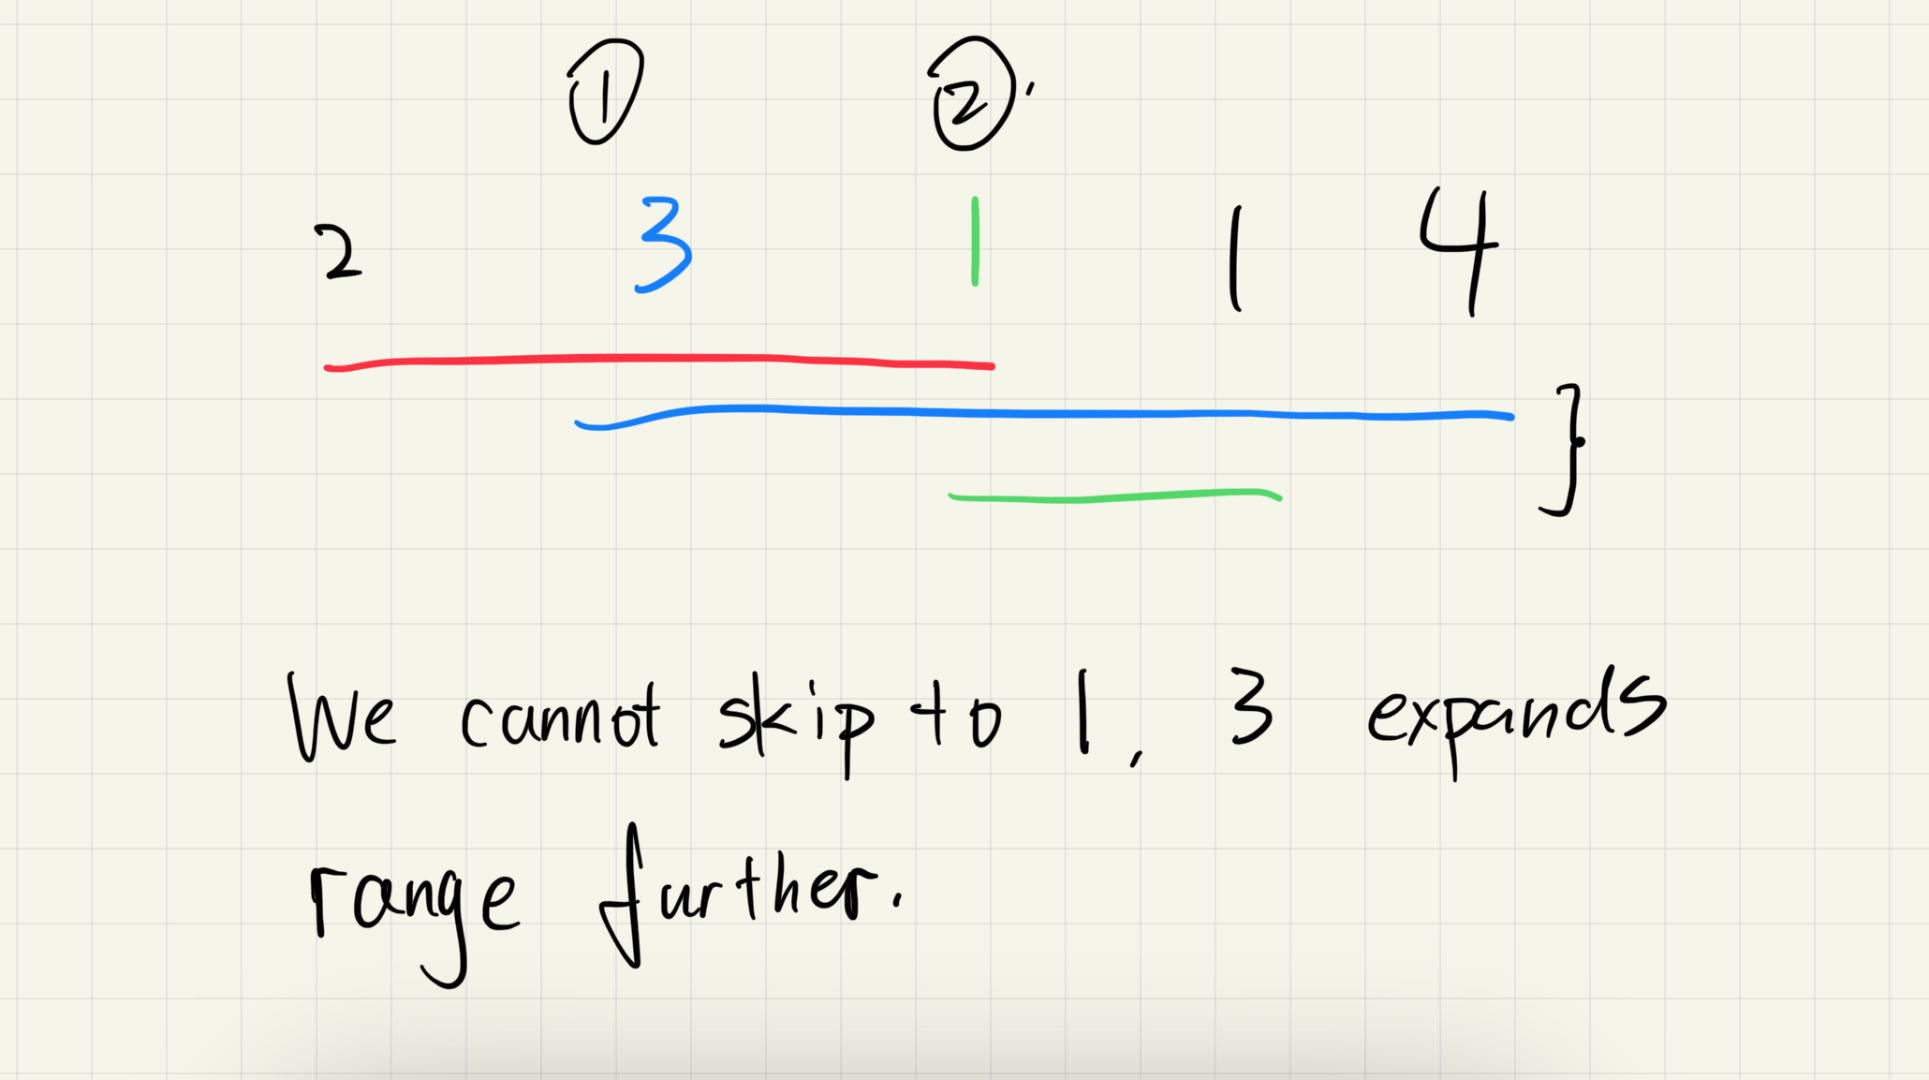 ① ②.
2 3 1 1 4
We cannot skip to 1, 3 expands
range further.